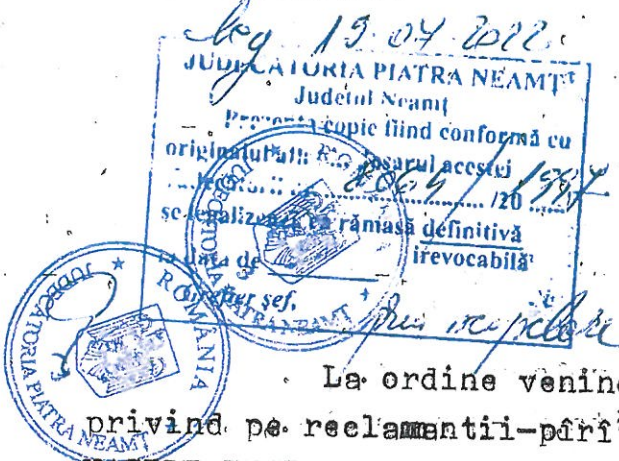 leg 19.04.2022
JUDECĂTORIA PIATRA NEAMȚ
Județul Neamț
Prezenta copie fiind conformă cu
originalul aflat în dosarul acestei
/1997 /20
se legalizează rămasă definitivă
la data de irevocabilă
Grefier șef,
prin neapelare
ROMÂNIA
JUDECĂTORIA PIATRA NEAMȚ
ROMÂNIA
JUDECĂTORIA PIATRA NEAMȚ
La ordine venind
privind pe reclamantii-pîrît